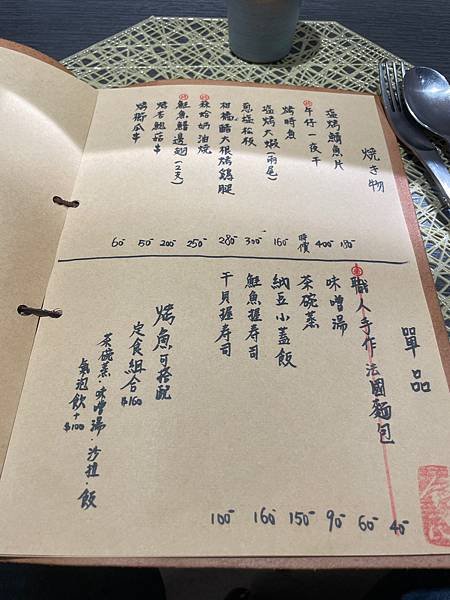 焼き物
塩烤鯖魚片
特 午仔一夜干
烤時魚
塩烤大蝦(兩尾)
蔥塩松板
柑橘醋大根烤雞腿
特 蒜蛤奶油燒
特 鮭魚鰭邊翅(2支)
烤杏鮑菇串
烤櫛瓜串
60- 50- 200- 250- 280- 300- 160- 時價 400- 180-
單品
職人手作法國麵包
味噌湯
茶碗蒸
納豆小蓋飯
鮭魚握寿司
干貝握寿司
100- 160- 150- 90- 60- 40-
烤魚可搭配
定食組合$160
茶碗蒸·味噌湯·沙拉·飯
氣泡飲+$100